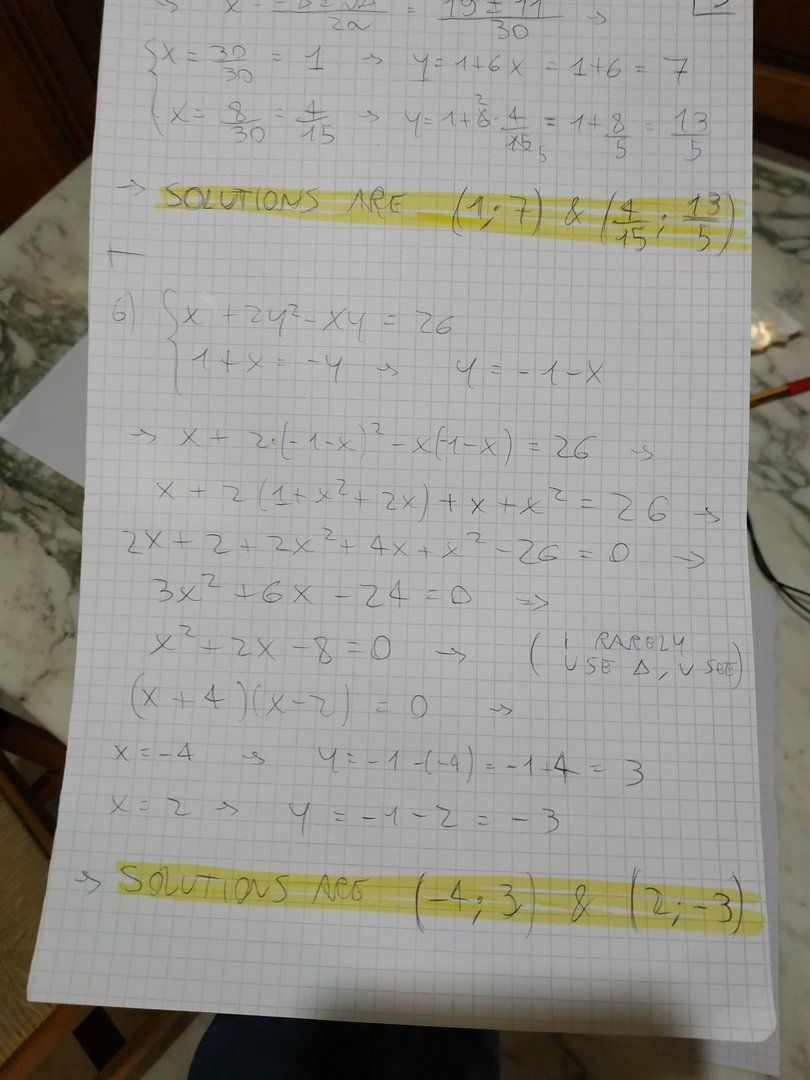 → x = (-b ± √Δ)/2a = (19 ± 11)/30 →
{ x = 30/30 = 1 → y = 1+6x = 1+6 = 7
x = 8/30 = 4/15 → y = 1+6² · 4/15 5 = 1 + 8/5 = 13/5
→ SOLUTIONS ARE (1; 7) & (4/15; 13/5)
6) { x + 2y² - xy = 26
1+x = -y → y = -1-x
→ x + 2·(-1-x)² - x(-1-x) = 26 →
x + 2(1+x²+2x) + x + x² = 26 →
2x + 2 + 2x² + 4x + x² - 26 = 0 →
3x² + 6x - 24 = 0 ⇒
x² + 2x - 8 = 0 → (I RARELY
USE Δ, U SEE)
(x+4)(x-2) = 0 →
x = -4 → y = -1-(-4) = -1+4 = 3
x = 2 → y = -1-2 = -3
→ SOLUTIONS ARE (-4; 3) & (2; -3)